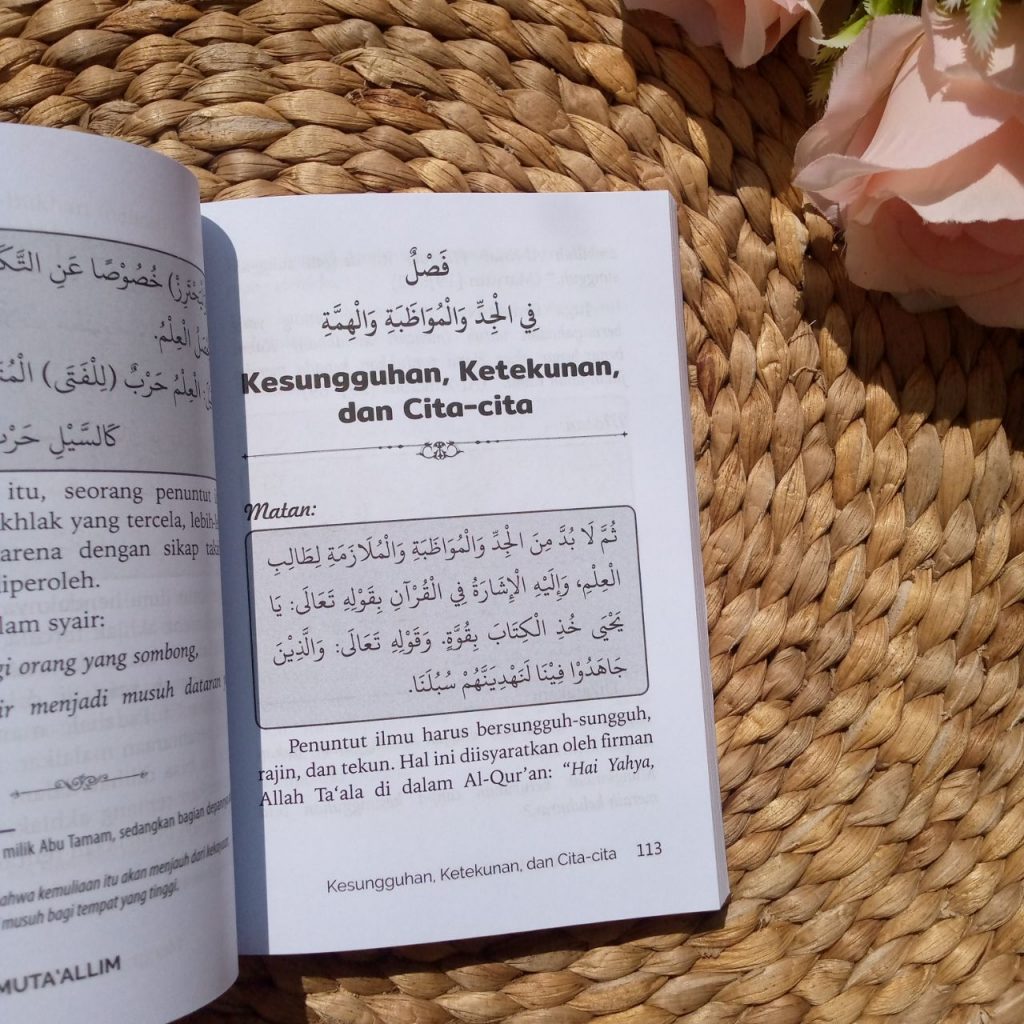 خُصُوْصًا عَنِ
الْعِلْمُ.
الْعِلْمُ حَرْبٌ (لِلْفَتَى)
كَالسَّيْلِ
itu, seorang penuntut
yang tercela,
dengan sikap
syair:
orang yang sombong,
menjadi musuh dataran
milik Abu Tamam, sedangkan bagian
kemuliaan itu akan menjauh dari
musuh bagi tempat yang tinggi.
MUTA'ALLIM
فَصْلٌ
فِي الْجِدِّ وَالْمُوَاظَبَةِ وَالْهِمَّةِ
Kesungguhan, Ketekunan,
dan Cita-cita
Matan:
ثُمَّ لَا بُدَّ مِنَ الْجِدِّ وَالْمُوَاظَبَةِ وَالْمُلَازَمَةِ لِطَالِبِ
الْعِلْمِ، وَإِلَيْهِ الْإِشَارَةُ فِي الْقُرْآنِ بِقَوْلِهِ تَعَالَى: يَا
يَحْيَى خُذِ الْكِتَابَ بِقُوَّةٍ. وَقَوْلِهِ تَعَالَى: وَالَّذِيْنَ
جَاهَدُوْا فِيْنَا لَنَهْدِيَنَّهُمْ سُبُلَنَا.
Penuntut ilmu harus bersungguh-sungguh,
rajin, dan tekun. Hal ini diisyaratkan oleh firman
Allah Ta‘ala di dalam Al-Qur’an: “Hai Yahya,
Kesungguhan, Ketekunan, dan Cita-cita 113